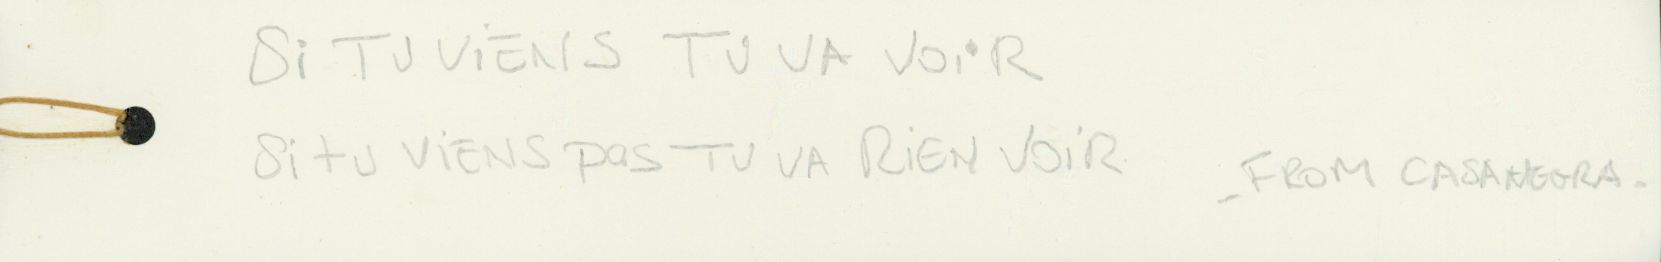 Si TU ViENS TU VA VOiR
Si tu ViENS pas TU VA RiEN VOiR
- FROM CASANEGRA.